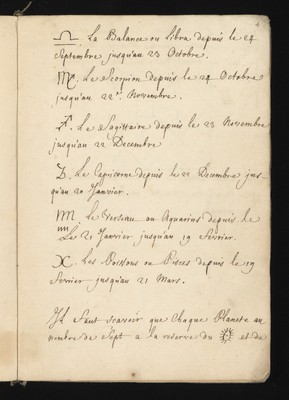 ♎. La Balance ou Libra depuis le 24
Septembre jusqu'au 23 Octobre.
♏. Le Scorpion depuis le 24 Octobre
jusqu'au 22e. Novembre.
♐. Le Sagittaire depuis le 23 Novembre
jusqu'au 22 Decembre
♑. Le Capricorne depuis le 22 Decembre jus-
qu'au 20 Janvier.
♒. Le Verseau ou Aquarius depuis le
Le 21 Janvier jusqu'au 19 Fevrier.
♓. Les Poissons ou Pisces depuis le 19
Fevrier jusqu'au 21 Mars.
Il faut scavoir que Chaque Planete au
nombre de Sept a la reserve du ☼ et du